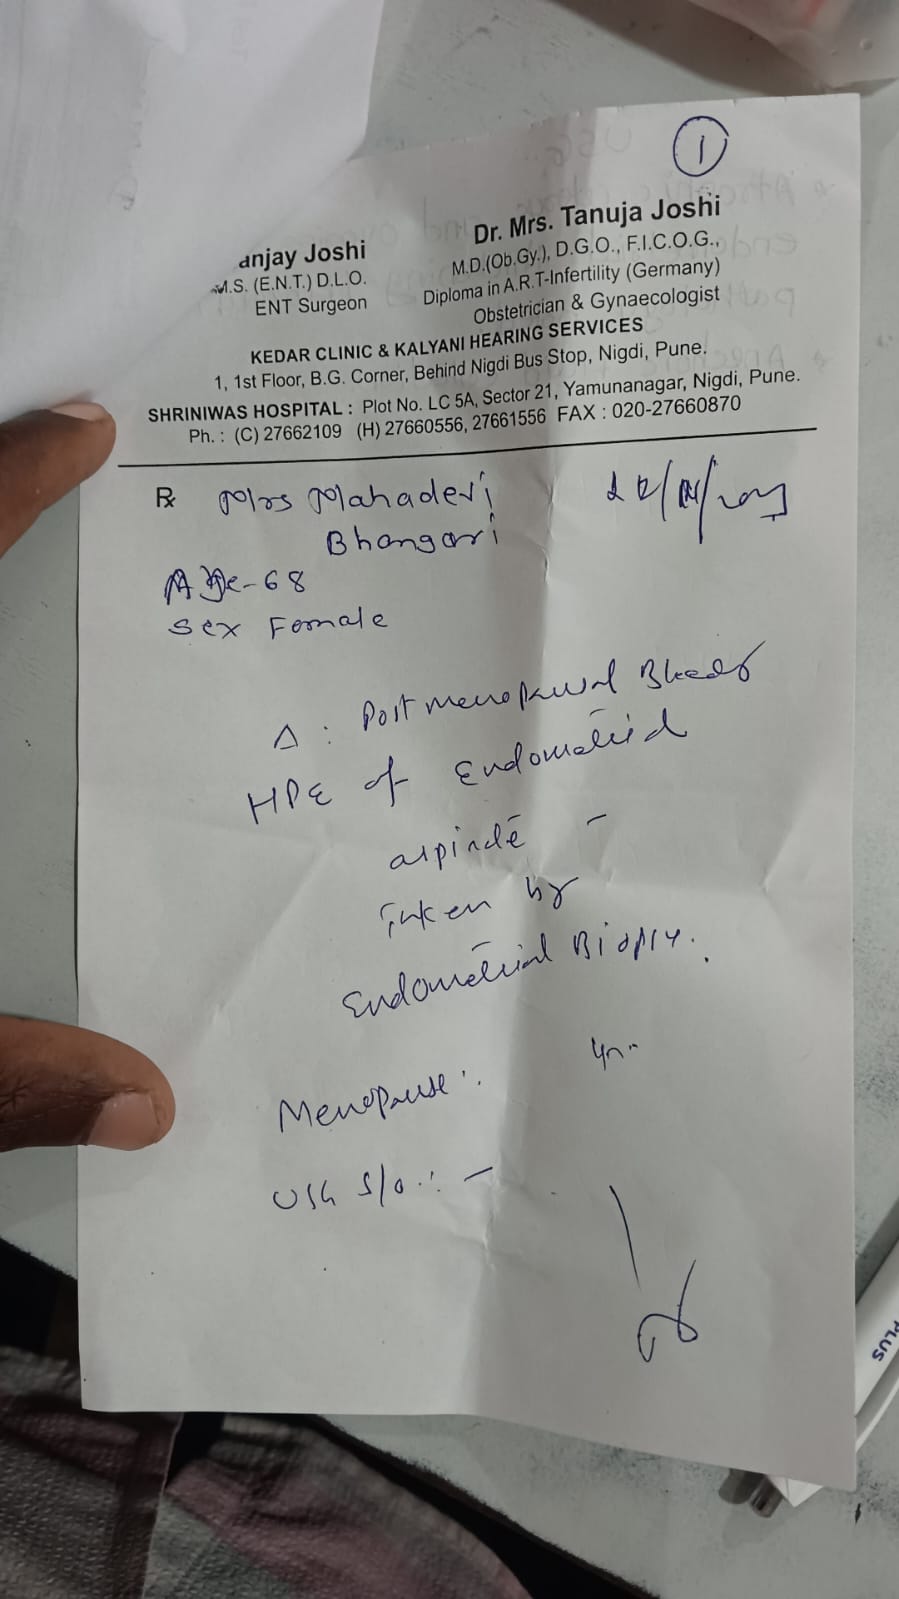 1
anjay Joshi
M.S. (E.N.T.) D.L.O.
ENT Surgeon
Dr. Mrs. Tanuja Joshi
M.D.(Ob.Gy.), D.G.O., F.I.C.O.G.,
Diploma in A.R.T-Infertility (Germany)
Obstetrician & Gynaecologist
KEDAR CLINIC & KALYANI HEARING SERVICES
1, 1st Floor, B.G. Corner, Behind Nigdi Bus Stop, Nigdi, Pune.
SHRINIWAS HOSPITAL : Plot No. LC 5A, Sector 21, Yamunanagar, Nigdi, Pune.
Ph. : (C) 27662109 (H) 27660556, 27661556 FAX : 020-27660870
Rx Mrs Mahadevi
Bhangari
Age-68
Sex Female
Δ : Post menopausal
HPE of Endometrial
aspirate -
taken by
Endometrial Biopsy.
Menopause :
USG S/o : -
PLUS